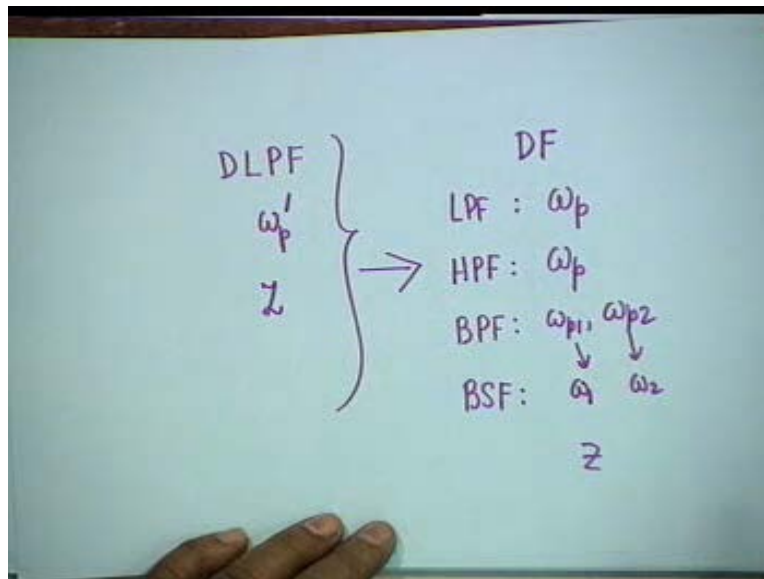 DLPF
ωp'
z
DF
LPF : ωp
HPF : ωp
BPF : ωp1, ωp2
BSF : ω1 ω2
z